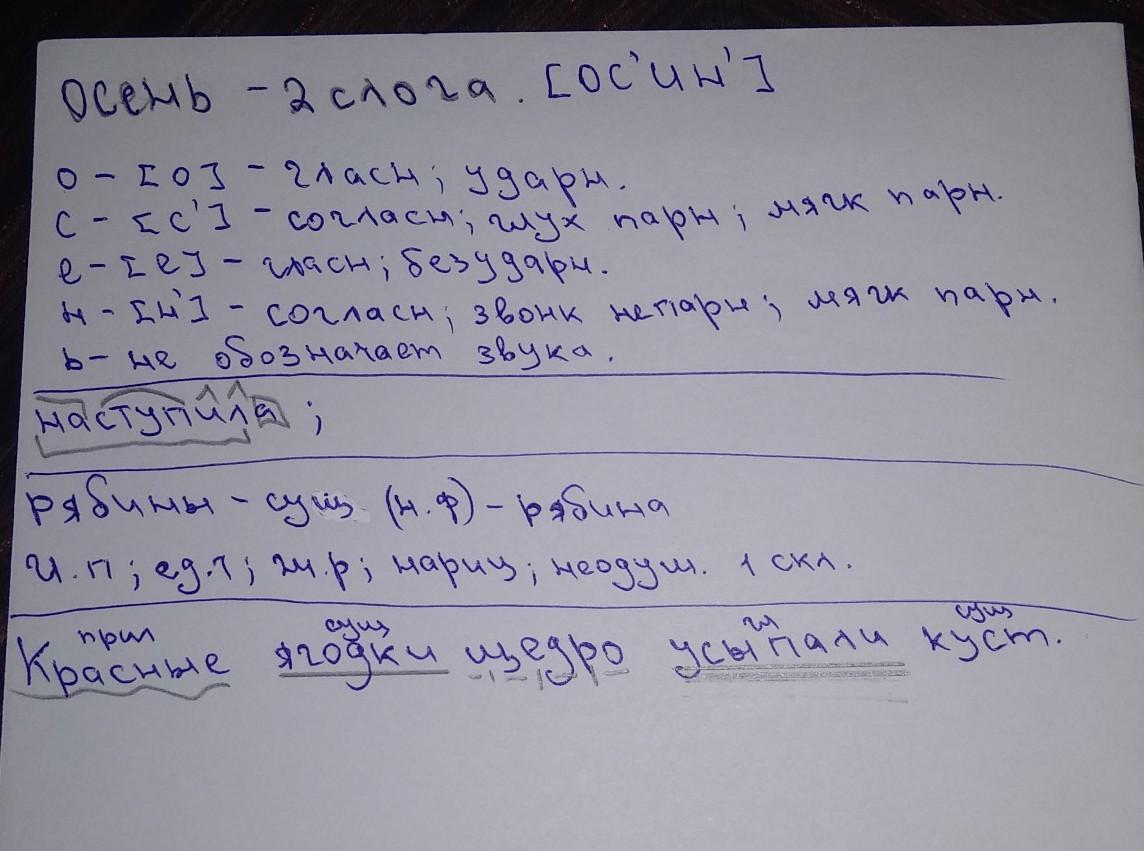 Осень - 2 слога. [ОС'ИН']
о - [о] - гласн; ударн.
с - [с'] - согласн; глух парн; мягк парн.
е - [е] - гласн; безударн.
н - [н'] - согласн; звонк непарн; мягк парн.
ь - не обозначает звука.
наступила ;
рябины - сущ. (н.ф) - рябина
И.п; ед.ч; ж.р; нариц; неодуш. 1 скл.
прил сущ гл сущ
Красные ягодки щедро усыпали куст.